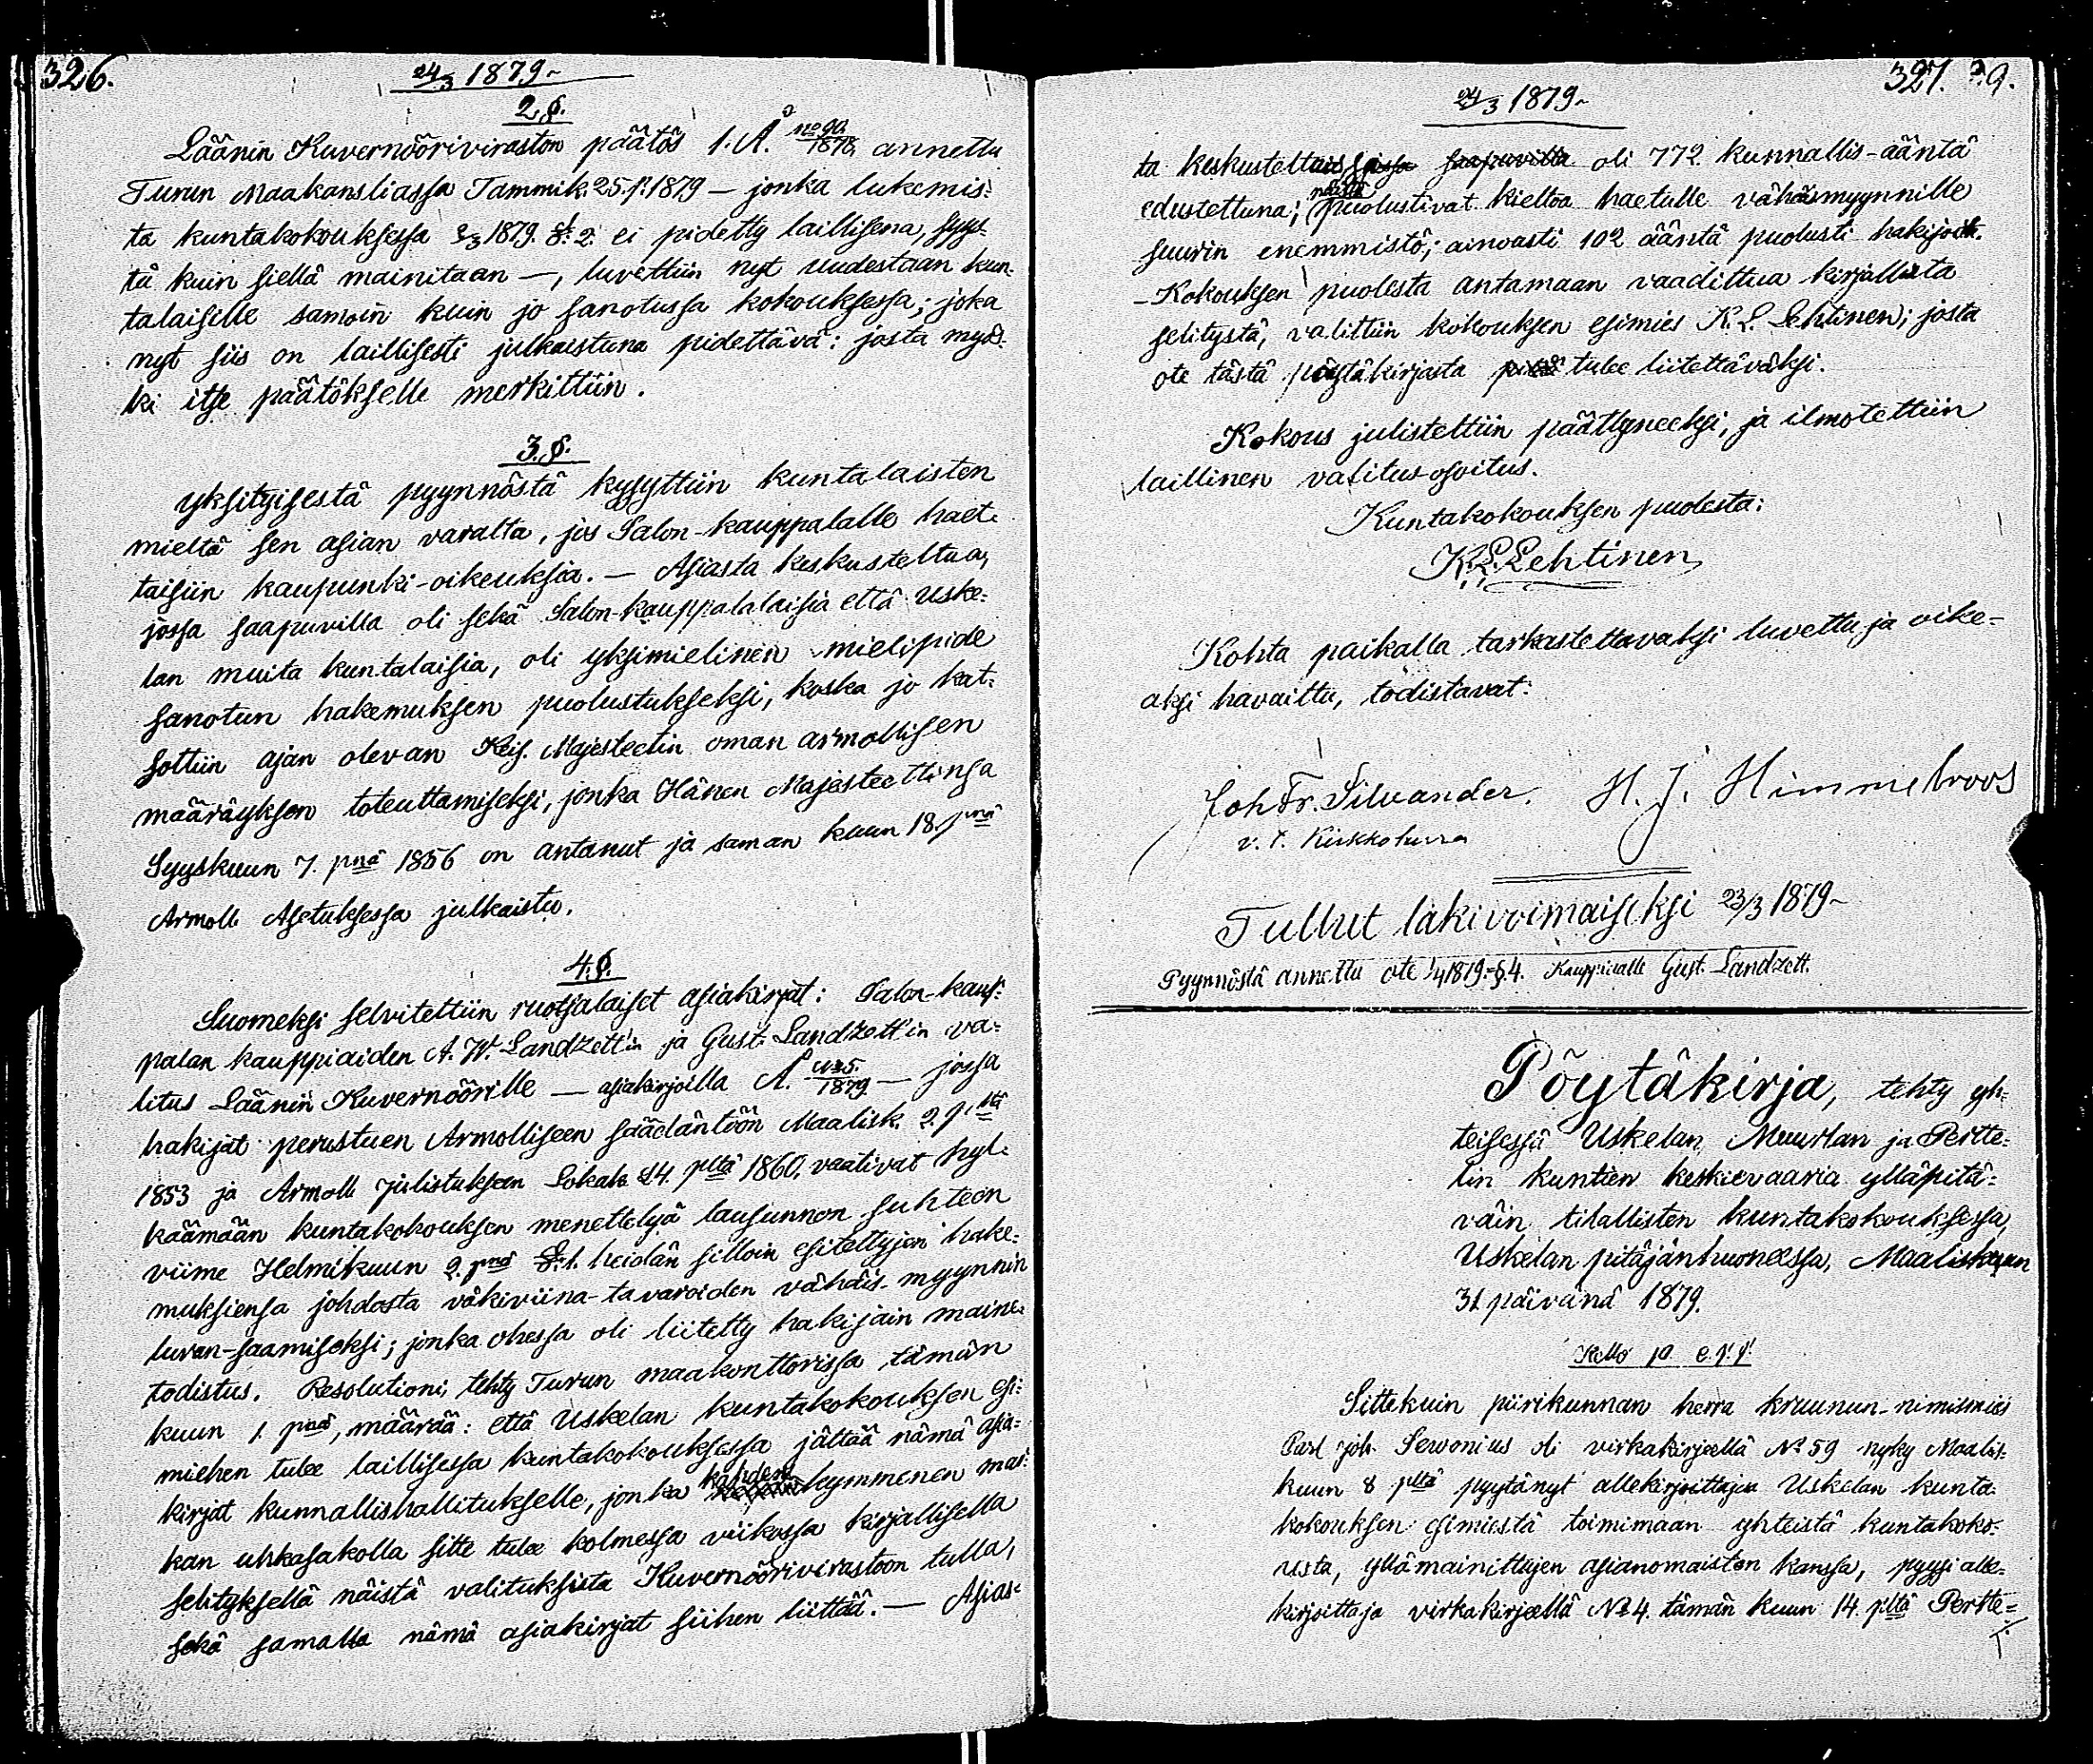 326.
24/3 1879.
2.§.
Läänin Kuvernööriviraston päätös 1. A. no 90/1878, annettu
Turun Maakansliassa Tammik. 25. p. 1879 — jonka lukemis-
ta kuntakokouksessa 3/3 1879. §. 2. ei pidetty laillisena, syys-
tä kuin siellä mainitaan —, luvettiin nyt uudestaan kun-
talaisille samoin kuin jo sanotussa kokouksessa; joka
nyt siis on laillisesti julkaistuna pidettävä: josta myös-
ki itse päätökselle merkittiin.
3.§.
Yksityisestä pyynnöstä kysyttiin kuntalaisten
mieltä sen asian varalta, jos Salon-kauppalalle haet-
taisiin kaupunki-oikeuksia. — Asiasta keskusteltua,
jossa saapuvilla oli sekä Salon-kauppalalaisia että Uske-
lan muita kuntalaisia, oli yksimielinen mielipide
sanotun hakemuksen puolustukseksi, koska jo kat-
sottiin ajan olevan Keis. Majesteetin oman armollisen
määräyksen toteuttamiseksi, jonka Hänen Majesteettinsa
Syyskuun 7. pnä 1856 on antanut ja saman kuun 18. pnä
Armoll. Asetuksessa julkaistu.
4.§.
Suomeksi selvitettiin ruotsalaiset asiakirjat: Salon-kaup-
palan kauppiaiden A. W. Landzett'in ja Gust. Landzett'in va-
litus Läänin Kuvernöörille — asiakirjoilla A. no 5./1879 — jossa
hakijat perustuen Armolliseen säädäntöön Maalisk. 2. pltä
1853 ja Armoll. Julistuksen Lokak. 24. pltä 1860, vaativat hyl-
käämään kuntakokouksen menettelyä lausunnon suhteen
viime Helmikuun 2. pnä §. 1. heidän silloin esitettyjen hake-
muksiensa johdosta väkiviina-tavaroiden vähäis-myynnin
luvan-saamiseksi; jonka ohessa oli liitetty hakijain maine-
todistus. Resolutioni, tehty Turun maakonttorissa tämän
kuun 1. pnä, määrää: että Uskelan kuntakokouksen esi-
miehen tulee laillisessa kuntakokouksessa jättää nämä asia-
kirjat kunnallishallitukselle, jonka kahdenkymmenen mar-
kan uhkasakolla sitte tulee kolmessa viikossa kirjallisella
selityksellä näistä valituksista Kuvernöörivirastoon tulla,
sekä samalla nämä asiakirjat siihen liittää. — Asias-
327.
24/3 1879.
ta keskusteltaissa saapuvilla oli 772 kunnallis-ääntä
edustettuna; näistä puolustivat kieltoa haetulle vähäismyynnille
suurin enemmistö; ainoasti 102 ääntä puolusti hakijoita.
– Kokouksen puolesta antamaan vaadittua kirjallista
selitystä, valittiin kokouksen esimies K. L. Lehtinen; josta
ote tästä pöytäkirjasta tulee liitettäväksi.
Kokous julistettiin päättyneeksi, ja ilmotettiin
laillinen valitusosoitus.
Kuntakokouksen puolesta:
K. L. Lehtinen
Kohta paikalla tarkastettavaksi luvettu ja oike-
aksi havaittu, todistavat:
Joh Fr. Silvander. H. J. Himmelroos
v. t. Kirkkoherra
Tullut lakivoimaiseksi 23/3 1879.
Pyynnöstä annettu ote 1/4 1879. §. 4. Kauppiaalle Gust. Landzett.
Pöytäkirja, tehty yh-
teisessä Uskelan, Muurlan ja Pertte-
lin kuntien keskievaaria ylläpitä-
väin tilallisten kuntakokouksessa,
Uskelan pitäjänhuoneessa, Maaliskuun
31 päivänä 1879.
Kello 10 e. p. p.
Sittekuin piirikunnan herra kruunun-nimismies
Carl Joh. Servonius oli virkakirjeellä No 59 nyky Maalis-
kuun 8 pltä pyytänyt allekirjoittajaa Uskelan kunta-
kokouksen esimiestä toimimaan yhteistä kuntakoko-
usta, yllämainittujen asianomaisten kanssa, pyysi alle-
kirjoittaja virkakirjeellä No 4. tämän kuun 14. pltä Pertte-